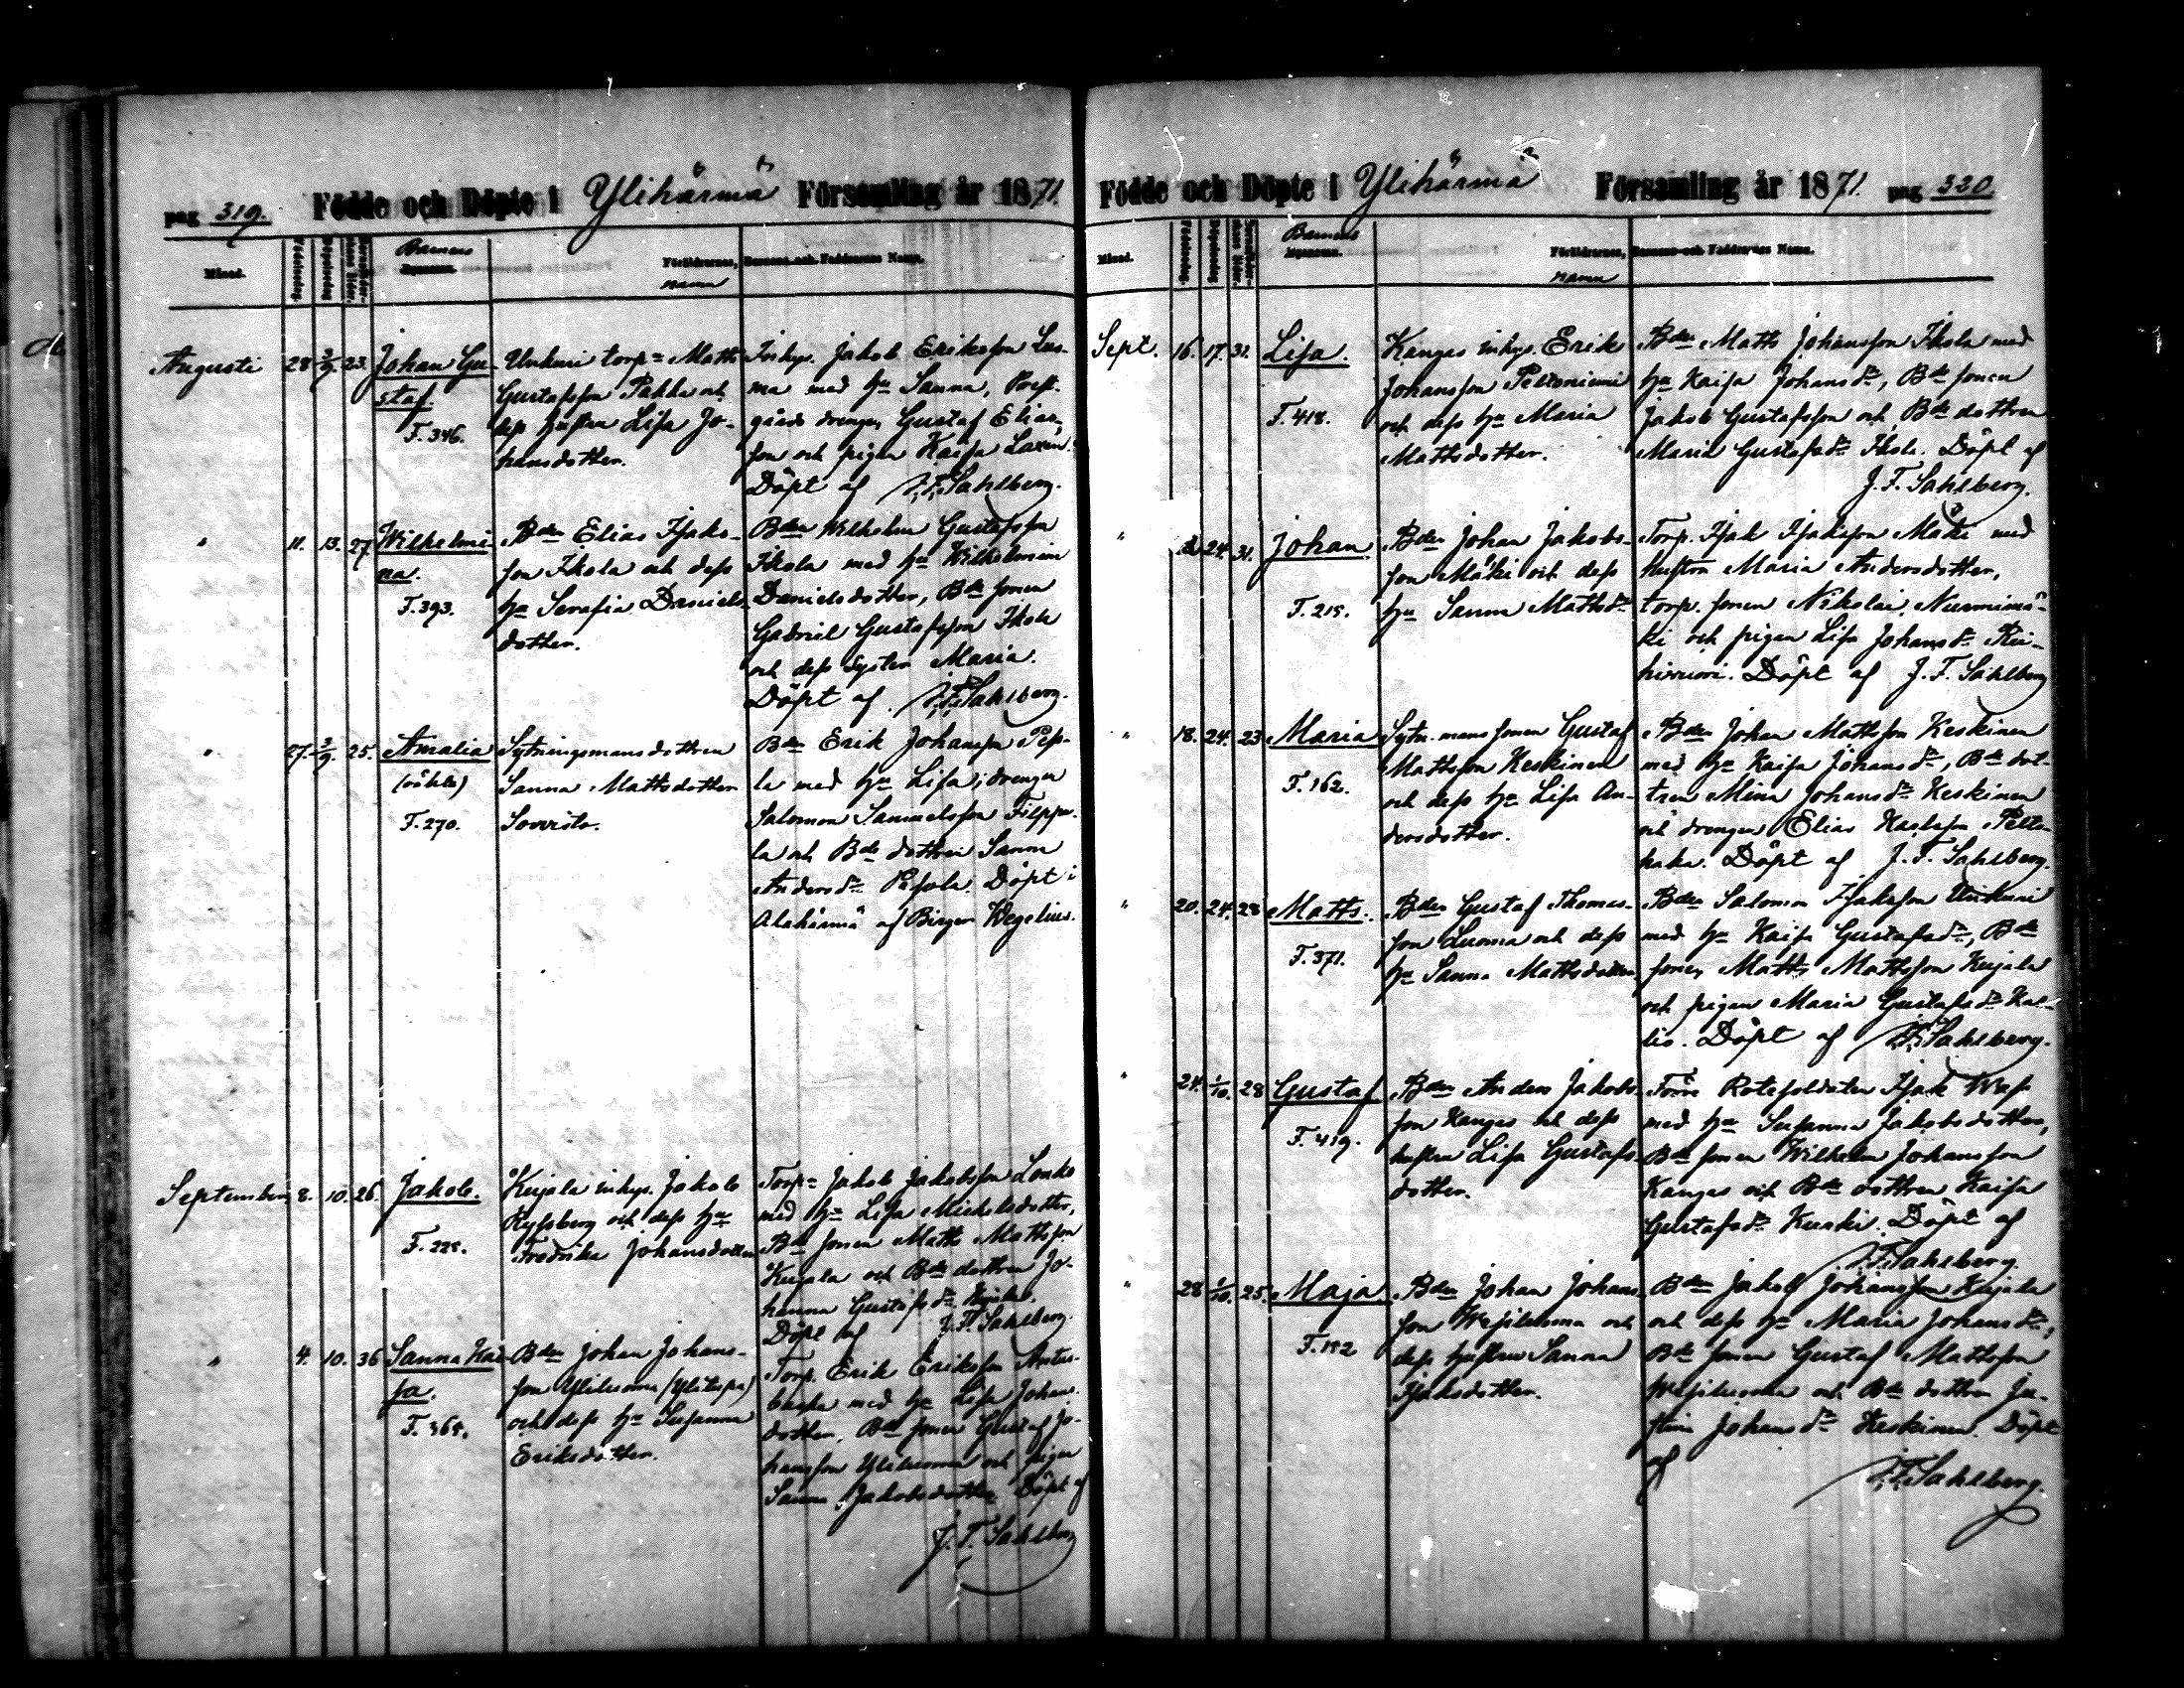 pag 319. Födde och Döpte i Ylihärmä Församling år 1871.
Månad. Födelsedag. Döpelsedag Barnens Föräldrarnes, namn Barnens och Faddrarnes Namn.
Augusti 28 3/9. 23. Johan Gu-
staf.
F. 346.
Unkuri torp. Matts
Gustafsson Pakka och
dess hustru Lisa Jo-
hansdotter.
Inhys. Jakob Eriksson Luo-
ma med hu Sanna, Prest-
gårds drengen Gustaf Elias-
son och pigan Kaisa
Döpt af J. F. Sahlberg.
" 11. 13. 27 Wilhelmi
na.
F. 393.
Bden Elias Isaks-
son Ikola och dess
hu Serafia Daniels
dotter.
Bden Wilhelm Gustafsson
Ikola med hu Wilhelmina
Danielsdotter, Bde sonen
Gabriel Gustafsson Ikola
och dess syster Maria.
Döpt af J. F. Sahlberg.
" 27. 3/9. 25. Amalia
(oäkta)
F. 270.
Sytningsmansdottren
Sanna Mattsdotter
Bde Erik Johansson
la med hu Lisa, drengen
Salomon Samuelsson Filppu-
la och Bde dottren Sanna
Andersdr Döpt i
Alahärmä af Birger Wegelius.
September 8. 10. 26. Jakob.
F. 225.
Kujala inhys. Jakob
och dess hu
Fredrika Johansdotter
Torp. Jakob Jakobsson Louko
med hu Lisa Mickelsdotter,
Bde sonen Matts Mattsson
Kujala och Bde dottren Jo-
hanna Gustafsdr Kujala.
Döpt af J. F. Sahlberg.
" 4. 10. 36 Sanna Kai
sa.
F. 365.
Bden Johan Johans-
son Yliluoma (Ylitupa)
och dess hu Susanna
Eriksdotter.
Torp. Erik Eriksson
med hu Lisa Johans
dotter, Bde sonen Gustaf Jo-
hansson Yliluoma och pigan
Sanna Jakobsdotter Döpt af
J. F. Sahlberg
Födde och Döpte i Ylihärmä Församling år 1871. pag 320.
Månad. Födelsedag Döpelsedag Barnens Föräldrarnes, namn Barnens och Faddrarnes Namn.
Sept. 16. 17. 31. Lisa.
F. 418.
Kangas inhys. Erik
Johansson Peltoniemi
och dess hu Maria
Mattsdotter.
Bden Matts Johansson Ikola med
hu Kaisa Johansdr, Bde sonen
Jakob Gustafsson och Bde dottren
Maria Gustafsdr Ikola. Döpt af
J. F. Sahlberg.
" 24. 31. Johan
F. 215.
Bden Johan Jakobs-
son Mäki och dess
hu Sanna Mattsdr
Torp. Isak Isaksson Mäki med
hustru Maria Andersdotter,
torp. sonen Nikolai Nurmimä-
ki och pigan Lisa Johansdr Rii-
hivuori. Döpt af J. F. Sahlberg
" 18. 24. 23 Maria
F. 162.
Sytn. mans sonen Gustaf
Mattsson Keskinen
och dess hu Lisa An-
dersdotter.
Bden Johan Mattsson Keskinen
med hu Kaisa Johansdr, Bde dot-
tren Mina Johansdr Keskinen
och drengen Elias Pelto-
haka. Döpt af J. F. Sahlberg.
" 20. 24. 28 Matts.
F. 371.
Bden Gustaf Thomas-
son Luoma och dess
hu Sanna Mattsdotter
Bden Salomon Isaksson Unkuri
med hu Kaisa Gustafsdr, Bde
sonen Matts Mattsson Kujala
och pigan Maria Gustafsdr Kal-
lio. Döpt af J. F. Sahlberg.
" 24. 1/10. 28 Gustaf
F. 419.
Bden Anders Jakobs-
son Kangas och dess
hustru Lisa Gustafs-
dotter.
Förre Rotesoldaten Isak Wass
med hu Susanna Jakobsdotter,
Bde sonen Wilhelm Johansson
Kangas och Bde dottren Kaisa
Gustafsdr Kuoki. Döpt af
J. F. Sahlberg.
" 28 1/10. 25. Maja
F. 192
Bden Johan Johans-
son Wesiluoma och
dess hustru Sanna
Isaksdotter.
Bden Jakob Johansson Kujala
och dess hu Maria Johansdr,
Bde sonen Gustaf Mattsson
Wesiluoma och Bde dottren Ju-
stina Johansdr Keskinen. Döpt
af J. F. Sahlberg.